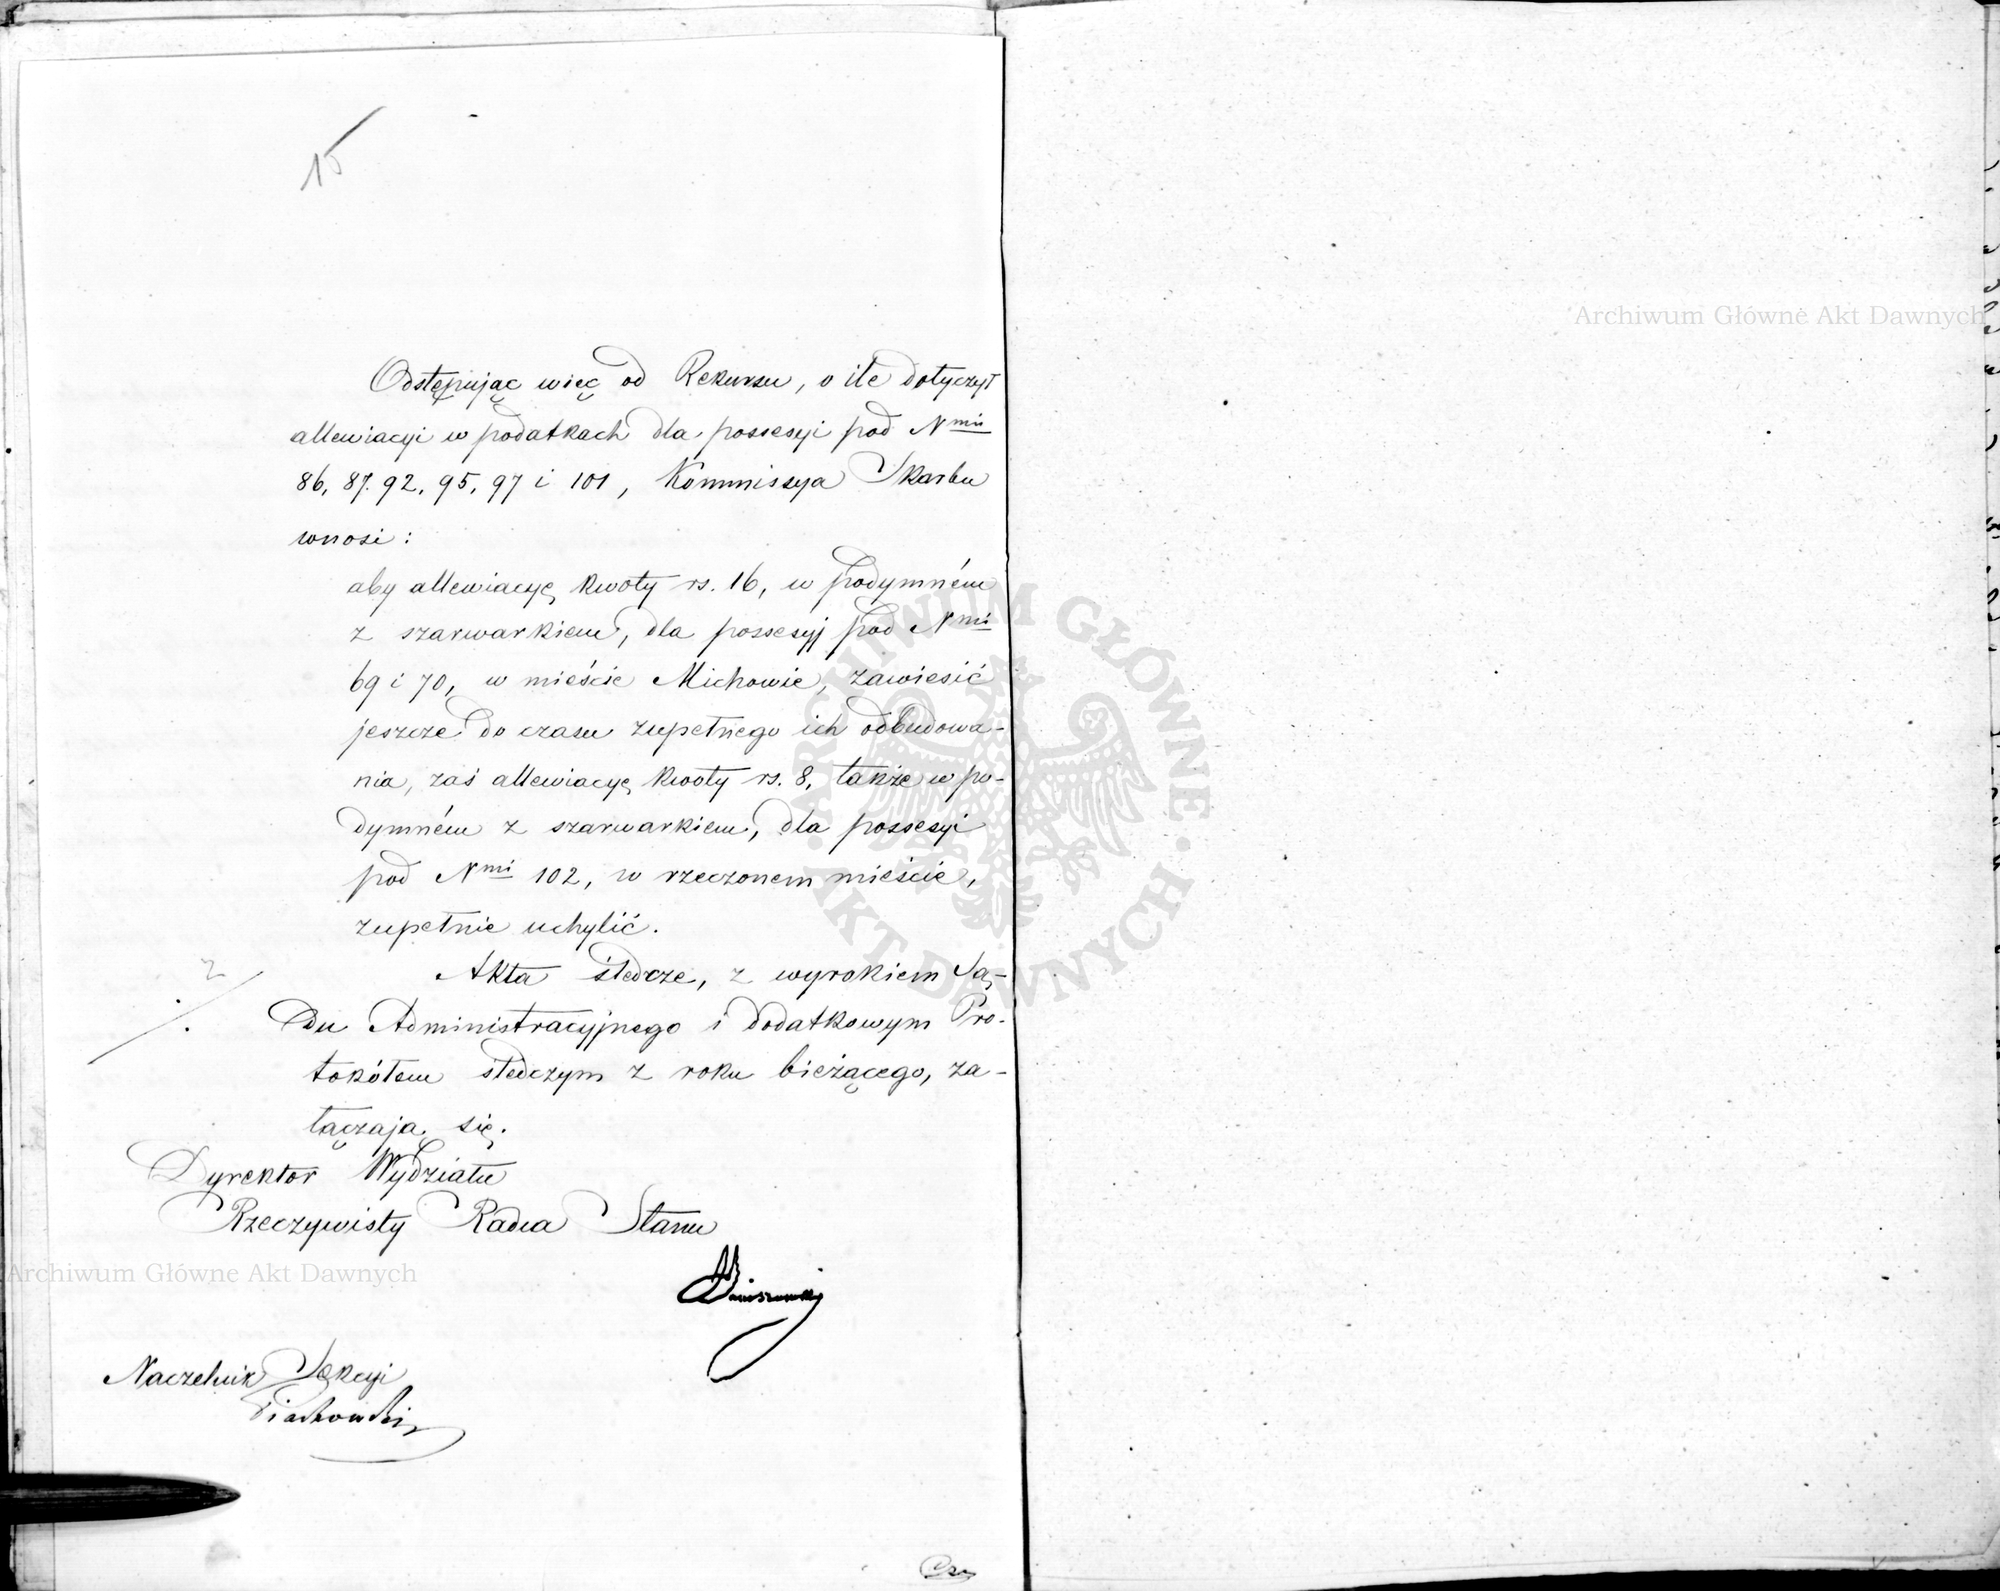 15
Odstępując więc od Rekursu, o ile dotyczył
allewiacyi w podatkach dla possesyi pod Nmi
86, 87. 92, 95, 97 i 101, Kommissya Skarbu
wnosi:
aby allewiacyę kwoty rs. 16, w podymném
z szarwarkiem, dla possesyj pod Nmi
69 i 70, w mieście Michowie, zawiesić
jeszcze do czasu zupełnego ich odbudowa-
nia, zaś allewiacyę kwoty rs. 8, także w po-
dymném z szarwarkiem, dla possesyi
pod Nmi 102, w rzeczonem mieście,
zupełnie uchylić.
2
Akta śledcze, z wyrokiem Są-
du Administracyjnego i dodatkowym Pro-
tokółem śledczym z roku bieżącego, za-
łączają się.
Dyrektor Wydziału
Rzeczywisty Radca Stanu
Naczelnik Sekcyi
Archiwum Główne Akt Dawnych
Archiwum Główne Akt Dawnych
ARCHIWUM GŁÓWNE · AKT DAWNYCH ·